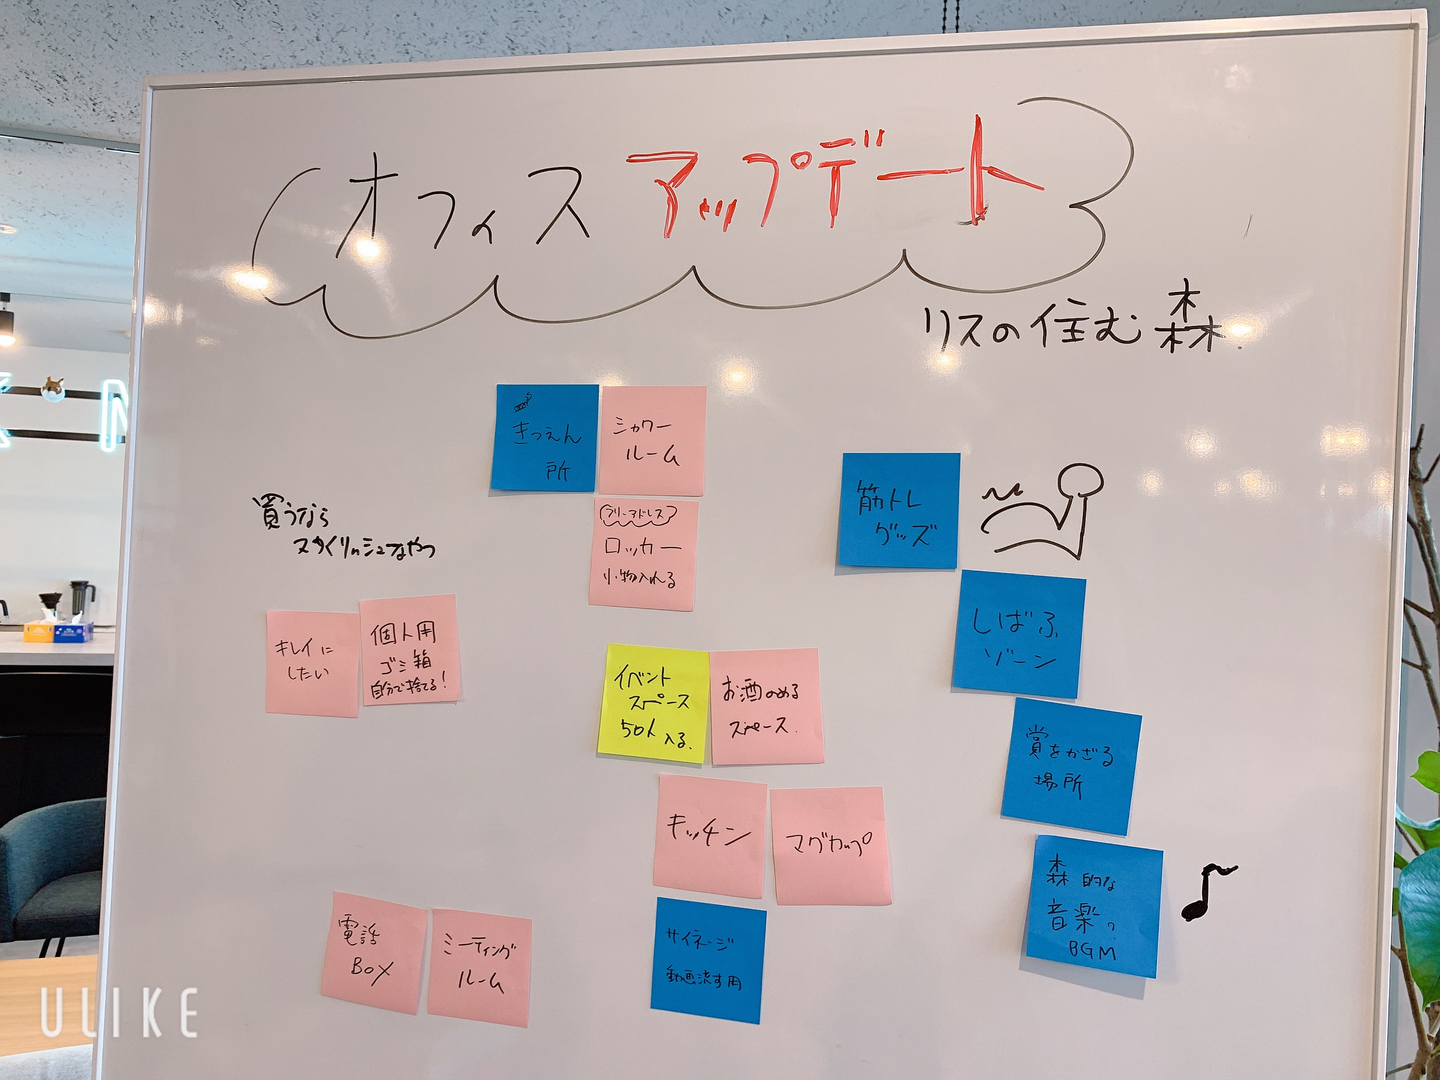 オフィス アップデート
リスの住む森
きつえん
所
シャワー
ルーム
フリーアドレス
ロッカー
小物入れる
買うなら
スタイリッシュなやつ
キレイに
したい
個人用
ゴミ箱
自分で捨てる!
イベント
スペース
50人入る.
お酒のめる
スペース.
キッチン
マグカップ
サイネージ
動画流す用
電話
BOX
ミーティング
ルーム
筋トレ
グッズ
しばふ
ゾーン
賞をかざる
場所
森的な
音楽?
BGM
ULIKE